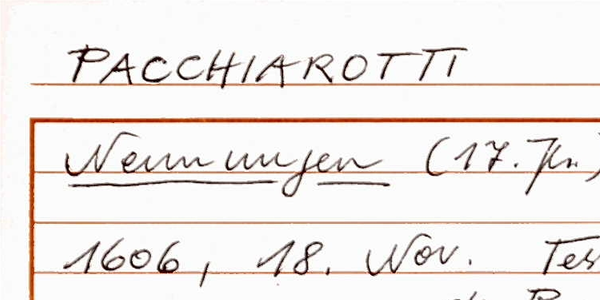 PACCHIAROTTI
Nennungen (17. Jh.)
1606, 18. Nov. Tes